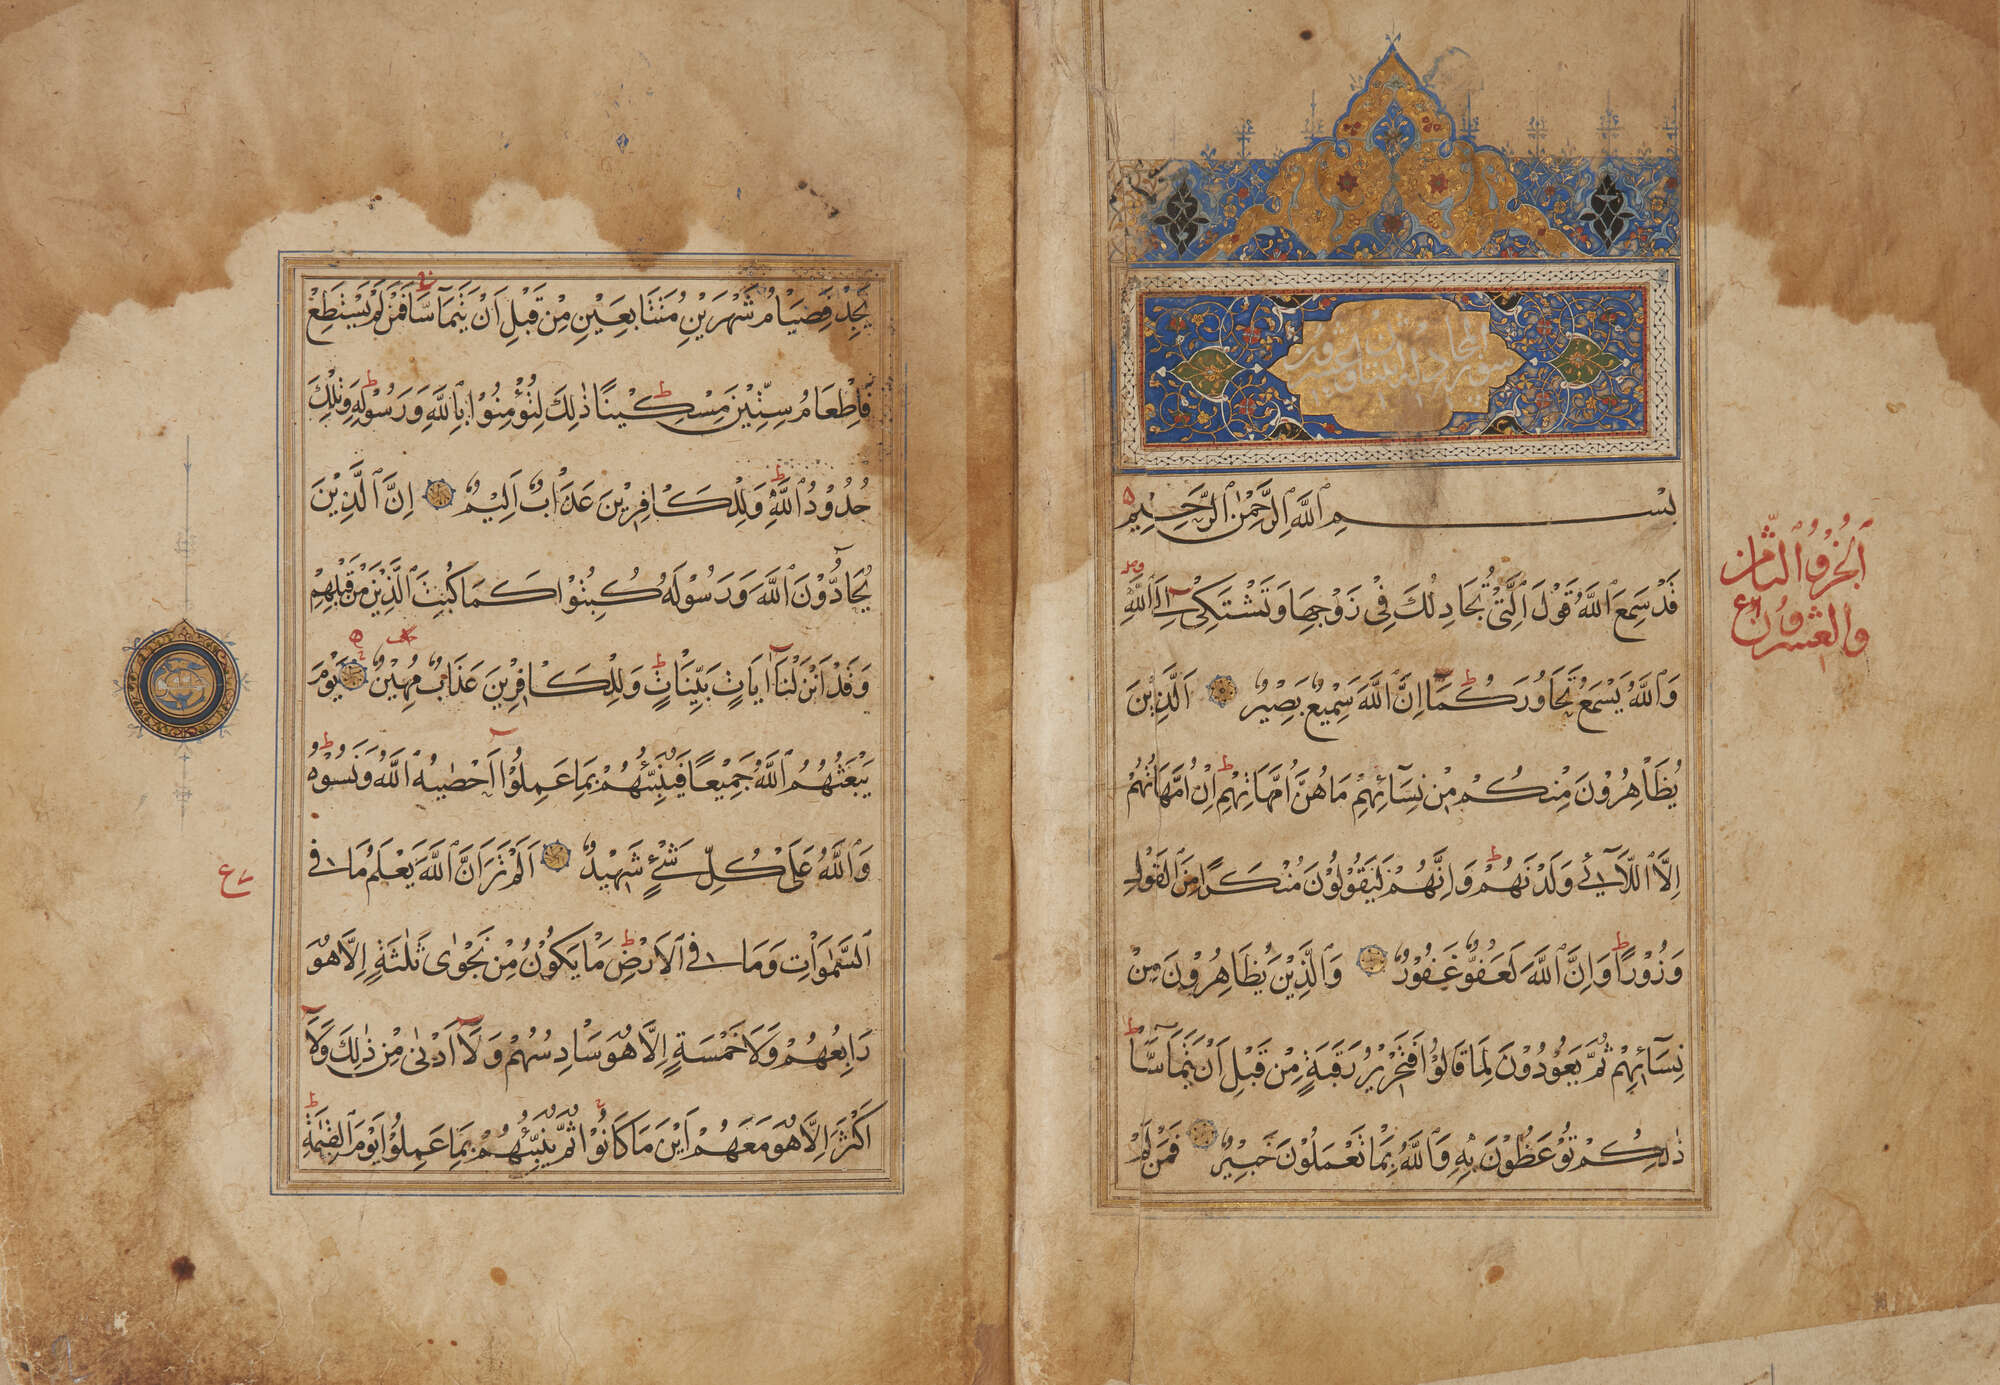 سورة المجادلة اثنتان وعشرون
بِسْمِ ٱللَّهِ ٱلرَّحْمٰنِ ٱلرَّحِيْمِ
قَدْ سَمِعَ ٱللَّهُ قَوْلَ ٱلَّتِيْ تُجَادِلُكَ فِيْ زَوْجِهَا وَتَشْتَكِيْ اِلَى ٱللَّهِ
وَٱللَّهُ يَسْمَعُ تَحَاوُرَكُمَا اِنَّ ٱللَّهَ سَمِيْعٌ بَصِيْرٌ اَلَّذِيْنَ
يُظَاهِرُوْنَ مِنْكُمْ مِنْ نِسَآئِهِمْ مَا هُنَّ اُمَّهَاتِهِمْ اِنْ اُمَّهَاتُهُمْ
اِلَّا ٱللَّآئِيْ وَلَدْنَهُمْ وَاِنَّهُمْ لَيَقُوْلُوْنَ مُنْكَرًا مِنَ ٱلْقَوْلِ
وَزُوْرًا وَاِنَّ ٱللَّهَ لَعَفُوٌّ غَفُوْرٌ وَٱلَّذِيْنَ يُظَاهِرُوْنَ مِنْ
نِسَآئِهِمْ ثُمَّ يَعُوْدُوْنَ لِمَا قَالُوْا فَتَحْرِيْرُ رَقَبَةٍ مِنْ قَبْلِ اَنْ يَتَمَآسَّا
ذٰلِكُمْ تُوْعَظُوْنَ بِهِ وَٱللَّهُ بِمَا تَعْمَلُوْنَ خَبِيْرٌ فَمَنْ لَمْ
ٱلجزؤ ٱلثامن
والعشرون
يَجِدْ فَصِيَامُ شَهْرَيْنِ مُتَتَابِعَيْنِ مِنْ قَبْلِ اَنْ يَتَمَآسَّا فَمَنْ لَمْ يَسْتَطِعْ
فَاِطْعَامُ سِتِّيْنَ مِسْكِيْنًا ذٰلِكَ لِتُؤْمِنُوْا بِٱللَّهِ وَرَسُوْلِهِ وَتِلْكَ
حُدُوْدُ ٱللَّهِ وَلِلْكَافِرِيْنَ عَذَابٌ اَلِيْمٌ اِنَّ ٱلَّذِيْنَ
يُحَآدُّوْنَ ٱللَّهَ وَرَسُوْلَهُ كُبِتُوْا كَمَا كُبِتَ ٱلَّذِيْنَ مِنْ قَبْلِهِمْ
وَقَدْ اَنْزَلْنَآ اٰيَاتٍ بَيِّنَاتٍ وَلِلْكَافِرِيْنَ عَذَابٌ مُهِيْنٌ يَوْمَ
يَبْعَثُهُمُ ٱللَّهُ جَمِيْعًا فَيُنَبِّئُهُمْ بِمَا عَمِلُوْا اَحْصٰيهُ ٱللَّهُ وَنَسُوْهُ
وَٱللَّهُ عَلَى كُلِّ شَيْءٍ شَهِيْدٌ اَلَمْ تَرَ اَنَّ ٱللَّهَ يَعْلَمُ مَا فِي
ٱلسَّمٰوَاتِ وَمَا فِي ٱلْاَرْضِ مَا يَكُوْنُ مِنْ نَجْوٰى ثَلٰثَةٍ اِلَّا هُوَ
رَابِعُهُمْ وَلَا خَمْسَةٍ اِلَّا هُوَ سَادِسُهُمْ وَلَآ اَدْنٰى مِنْ ذٰلِكَ وَلَآ
اَكْثَرَ اِلَّا هُوَ مَعَهُمْ اَيْنَ مَا كَانُوْا ثُمَّ يُنَبِّئُهُمْ بِمَا عَمِلُوْا يَوْمَ ٱلْقِيٰمَةِ